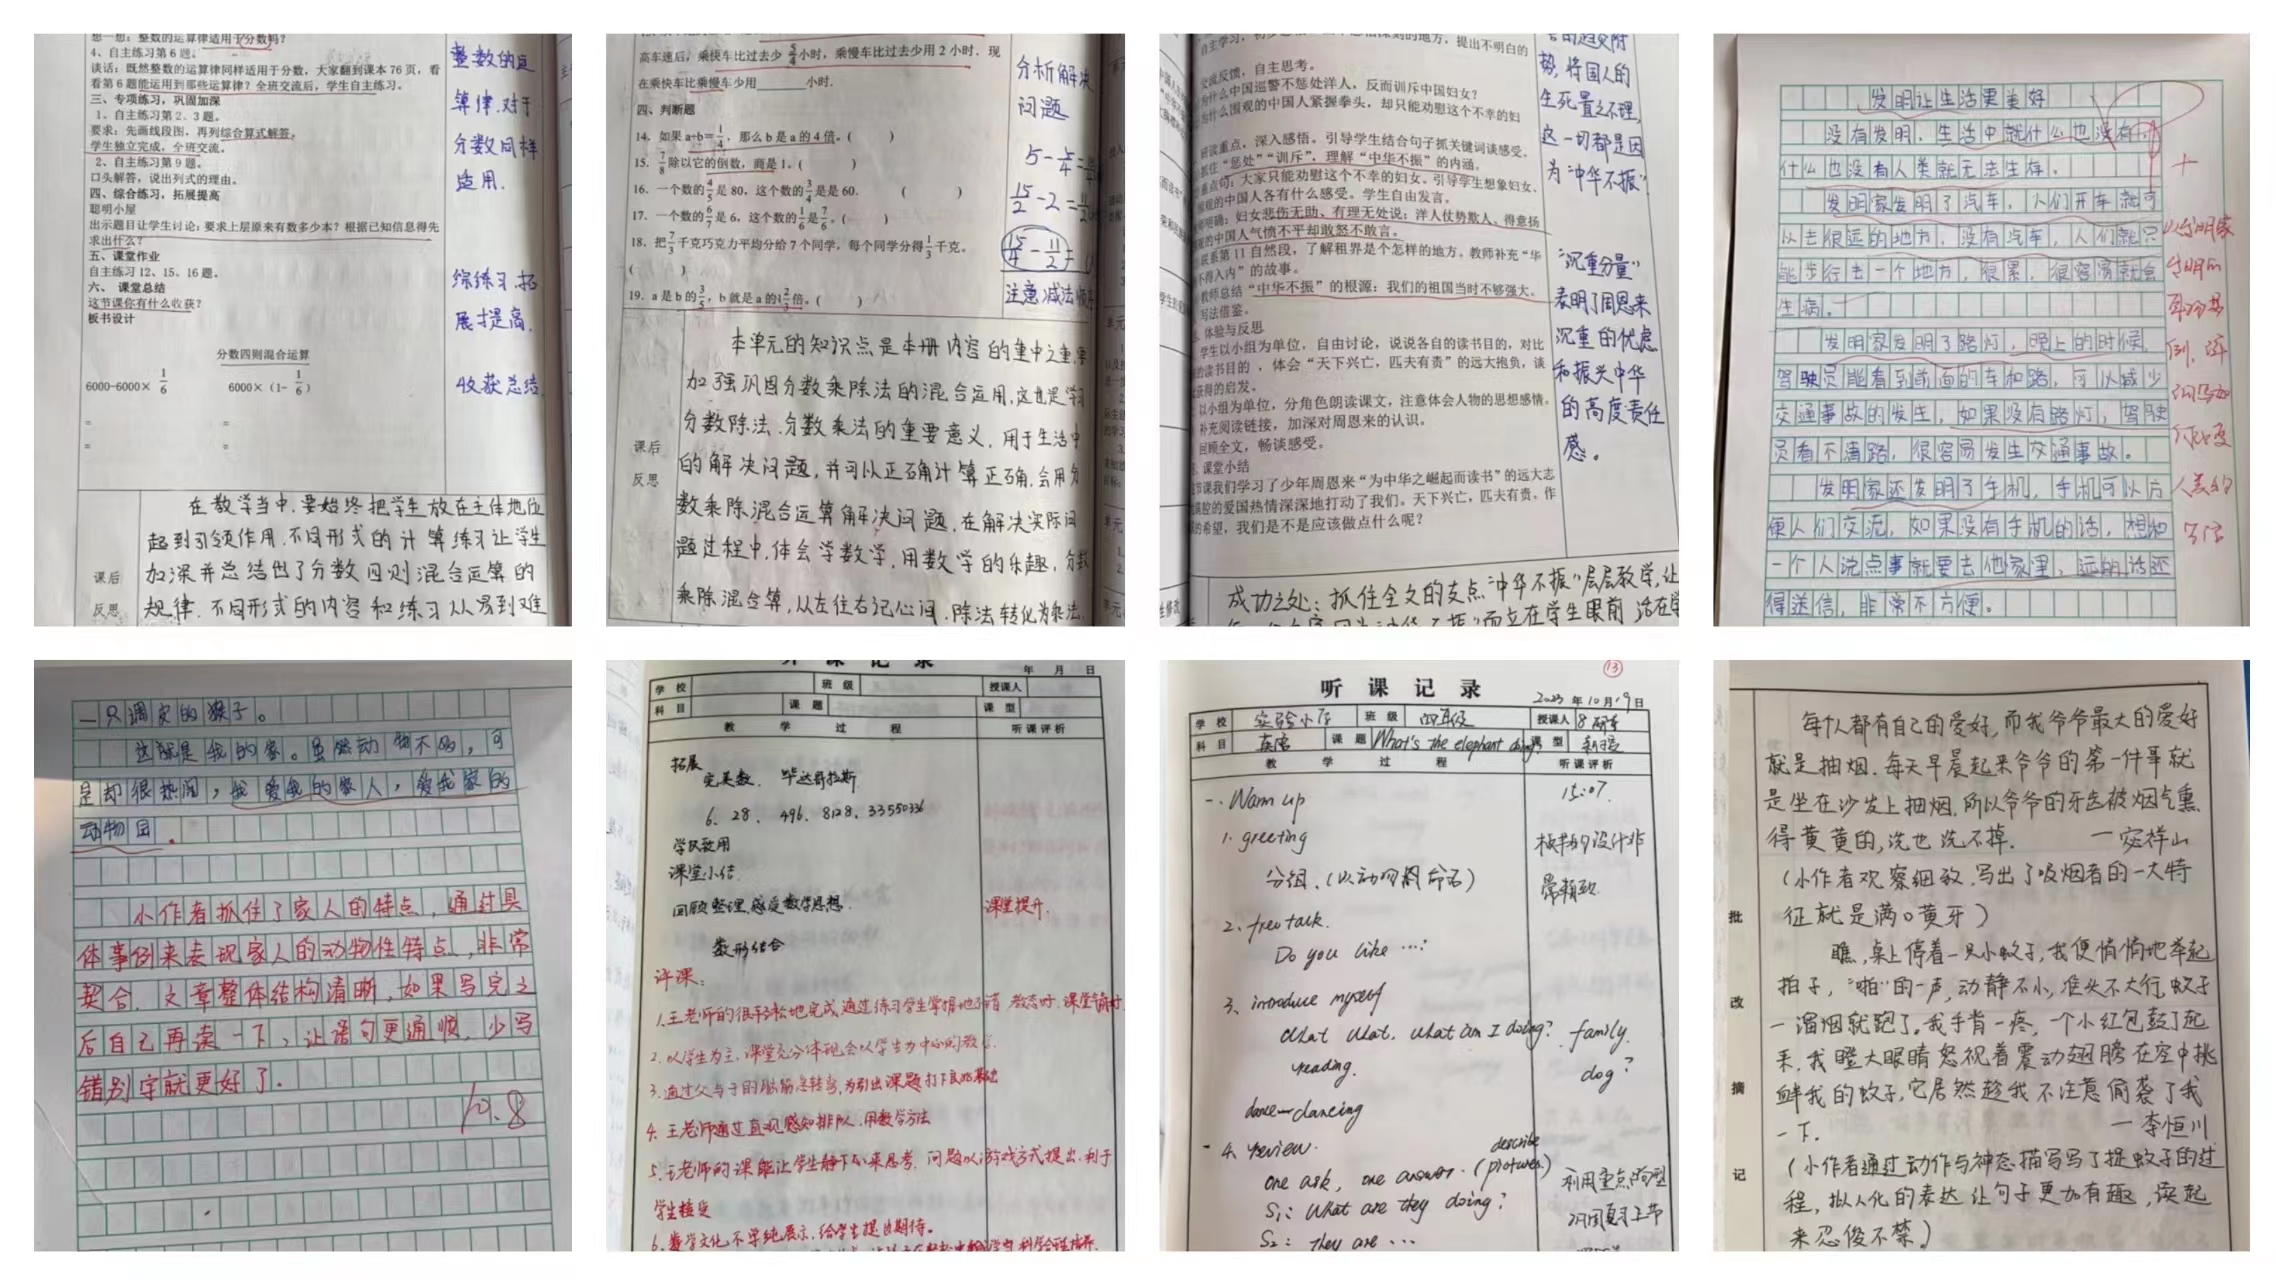 想一想：整数的运算律适用于分数吗？
4、自主练习第6题。
谈话：既然整数的运算律同样适用于分数，大家翻到课本76页，看
看第6题能运用到那些运算律？全班交流后，学生自主练习。
三、专项练习，巩固加深
1、自主练习第2、3题。
要求：先画线段图，再列综合算式解答。
学生独立完成，全班交流。
2、自主练习第9题。
口头解答，说出列式的理由。
四、综合练习，拓展提高
聪明小屋
出示题目让学生讨论：要求上层原来有数多少本？根据已知信息得先
求出什么？
五、课堂作业
自主练习12、15、16题。
六、课堂总结
这节课你有什么收获？
板书设计
分数四则混合运算
6000-6000×1/6
6000×（1-1/6）
=
=
=
=
整数的运
算律.对于
分数同样
适用.
综练习.拓
展才提高.
收获总结.
课后
反思
在教学当中.要始终把学生放在主体地位
起到引领作用.不同形式的计算练习让学生
加深并总结出了分数四则混合运算的
规律.不同形式的内容和练习从易到难
高车速后，乘快车比过去少5/4小时，乘慢车比过去少用2小时．现
在乘快车比乘慢车少用______小时.
四、判断题
14. 如果a÷b=1/4，那么b是a的4倍。（ ）
15. 7/8除以它的倒数，商是1。（ ）
16. 一个数的4/5是80，这个数的3/4是是60.（ ）
17. 一个数的6/7是6，这个数的1/6是7/6。（ ）
18. 把7/3千克巧克力平均分给7个同学，每个同学分得1/3千克。
（ ）
分析解决
问题
注意减法顺序
课后
反思
本单元的知识点是本册内容的重中之重,要
加强巩固分数乘除法的混合运用,这也是学习
分数除法.分数乘法的重要意义，用于生活中
的解决问题,并可以正确计算正确,会用分
数乘除混合运算解决问题,在解决实际问
题过程中,体会学数学，用数学的乐趣，分数
乘除混合算,从左往右记心间.除法转化为乘法,
交流反馈，自主思考。
为什么中国巡警不惩处洋人，反而训斥中国妇女？
为什么围观的中国人紧握拳头，却只能劝慰这个不幸的妇
研读重点，深入感悟。引导学生结合句子抓关键词谈感受。
抓住“惩处”“训斥”，理解“中华不振”的内涵。
重点句：大家只能劝慰这个不幸的妇女。引导学生想象妇女、
围观的中国人各有什么感受。学生自由发言。
明确：妇女悲伤无助、有理无处说；洋人仗势欺人、得意扬
的中国人气愤不平却敢怒不敢言。
联系第11自然段，了解租界是个怎样的地方。教师补充“华
不得入内”的故事。
教师总结“中华不振”的根源：我们的祖国当时不够强大。
写法借鉴。
体验与反思
学生以小组为单位，自由讨论，说说各自的读书目的，对比
的读书目的，体会“天下兴亡，匹夫有责”的远大抱负，谈
获得的启发。
以小组为单位，分角色朗读课文，注意体会人物的思想感情。
补充阅读链接，加深对周恩来的认识。
回顾全文，畅谈感受。
课堂小结
节课我们学习了少年周恩来“为中华之崛起而读书”的远大志
满腔的爱国热情深深地打动了我们。天下兴亡，匹夫有责，作
的希望，我们是不是应该做点什么呢？
势,将国人的
生死置之不理,
这一切都是因
为“中华不振”
“沉重分量”
表明了周恩来
沉重的忧虑
和振兴中华
的高度责任
感。
成功之处：抓住全文的支点“中华不振”层层教学,让
发明让生活更美好
没有发明，生活中就什么也没有，
什么也没有人类就无法生存。
发明家发明了汽车，人们开车就可
以去很远的地方，没有汽车，人们就只
能步行去一个地方，很累，很容易就会
生病。
发明家发明了路灯，晚上的时候，
驾驶员能看到前面的车和路，可以减少
交通事故的发生，如果没有路灯，驾驶
员看不清路，很容易发生交通事故。
发明家还发明了手机，手机可以方
便人们交流，如果没有手机的话，想和
一个人说点事就要去他家里，远的话还
得送信，非常不方便。
一只调皮的猴子。
这就是我的家。虽然动物不多，可
是却很热闹，我爱我的家人，爱我家的
动物园。
小作者抓住了家人的特点，通过具
体事例来表现家人的动物性特点，非常
契合. 文章整体结构清晰,如果写完之
后自己再读一下，让语句更通顺，少写
错别字就更好了.
10.8
年 月 日
学 校
班 级
授课人
科 目
课 题
课 型
教 学 过 程
听课评析
拓展
完美数. 毕达哥拉斯
6、28、496、8128、33550336
学以致用
课堂小结
回顾整理,感受数学思想.
数形结合
课堂提升.
评课：
2. 以学生为主,课堂充分体现会以学生为中心的教学.
4. 王老师通过直观感知排队.用数学方法
5. 王老师的课能让学生静下心来思考. 问题以游戏方式提出.利于
学生接受
6. 数学文化不单纯展示,给学生提出期待。
13
听 课 记 录
2023 年 10 月 19 日
学 校 实验小学 班 级 四年级 授课人
科 目 英语 课 题 What's the elephant doing? 课 型 新授
教 学 过 程
听课评析
一. Warm up
15:07
1. greeting
分组.（以动物园命名）
板书的设计非
常精致
2. free talk.
Do you like ...?
3. introduce myself
What what, what am I doing? family.
reading.
dog?
dance—dancing
4. review.
describe
one ask, one answer. (pictures)
S1: What are they doing?
S2: They are ...
利用重点句型
批
改
摘
记
每个人都有自己的爱好,而我爷爷最大的爱好
就是抽烟.每天早晨起来爷爷的第一件事就
是坐在沙发上抽烟.所以爷爷的牙齿被烟气熏
得黄黄的,洗也洗不掉.
（小作者观察细致.写出了吸烟者的一大特
征就是满口黄牙）
瞧,桌上停着一只小蚊子,我便悄悄地举起
拍子，“啪”的一声,动静不小,准头不大行,蚊子
一溜烟就跑了,我手肯一疼，一个小红包鼓了起
来,我瞪大眼睛怒视着震动翅膀在空中挑
衅我的蚊子,它居然趁我不注意偷袭了我
一下. —李恒川
（小作者通过动作与神态描写写了捉蚊子的过
程，拟人化的表达让句子更加有趣，读起
来忍俊不禁.）